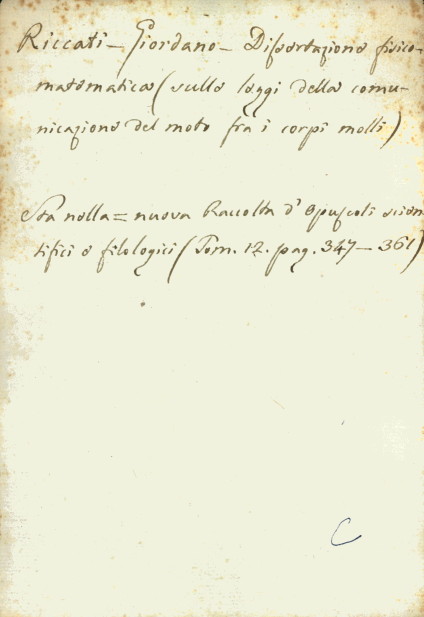 Riccati - Giordano - Dissertazione fisico-
matematica (sulle leggi della comu-
nicazione del moto fra i corpi molli)
Sta nella = nuova Raccolta d'Opuscoli scien
tifici e filologici (Tom. 12. pag. 347 - 361)
C